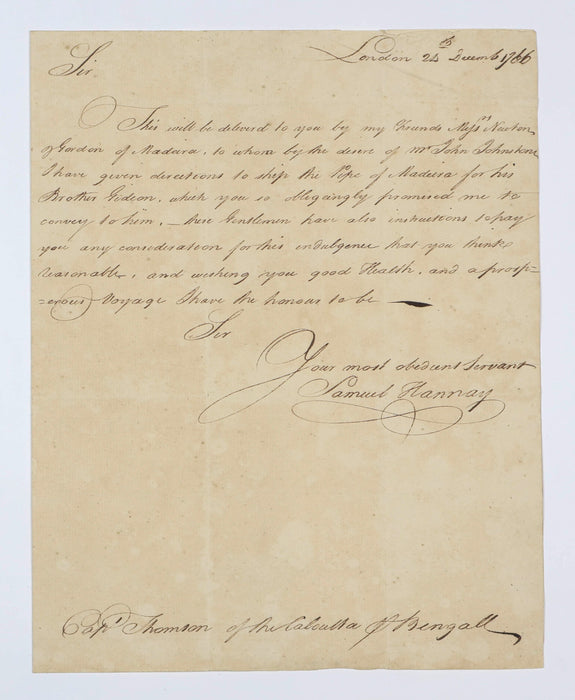 London 24th Decemb 1766
Sir
This will be deliverd to you by my Freinds Messrs Newton
& Gordon of Madeira, to whom by the desire of Mr John Johnstone
I have given directions to ship the Pipe of Madeira for his
Brother Gideon, which you so obligingly promised me to
convey to him, — these Gentlemen have also instructions to pay
you any consideration for this indulgence that you think
reasonable, and wishing you good Health, and a prosp=
=erous Voyage I have the honour to be —
Sir
Your most obedient Servant
Samuel Hannay
Capt Thomson of the Calcutta of Bengall